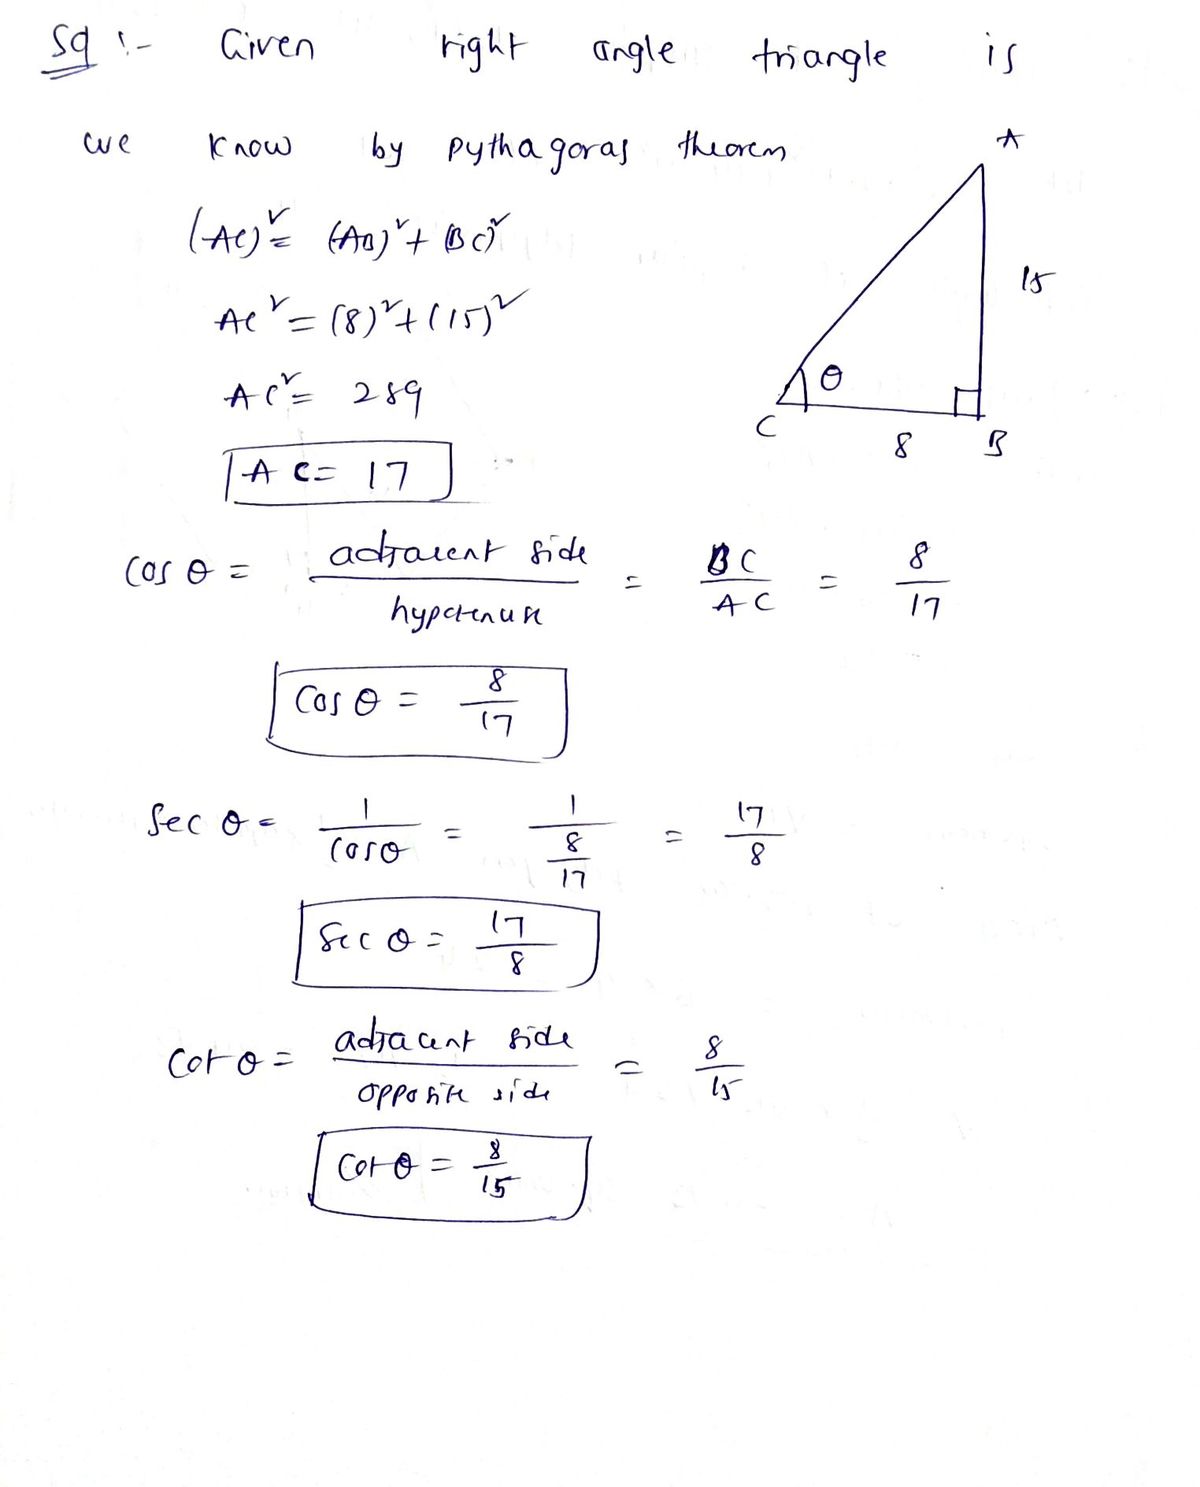 Sol :- Given right angle triangle is
we know by pythagoras theorem
A
(AC)² = (AB)² + (BC)²
15
AC² = (8)² + (15)²
θ
AC² = 289
C 8 B
AC = 17
cos θ = adjacent side / hypotenuse = BC / AC = 8/17
Cos θ = 8/17
Sec θ = 1/cosθ = 1/(8/17) = 17/8
Sec θ = 17/8
Cot θ = adjacent side / opposite side = 8/15
Cot θ = 8/15